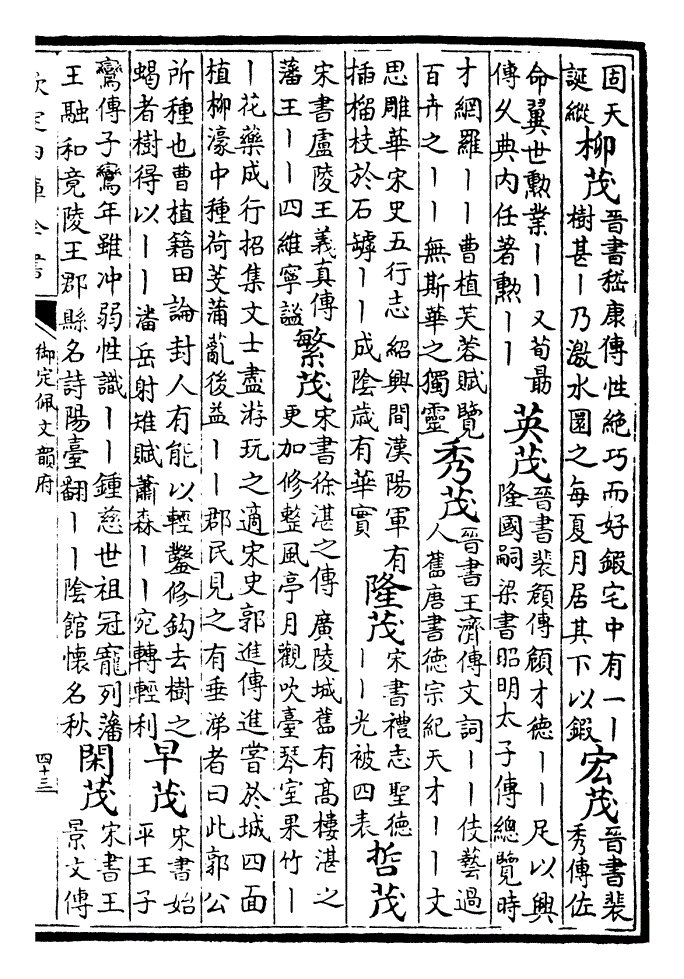 固天
誕縱
柳茂
晉書嵇康傳性絶巧而好鍜宅中有一丨
樹甚丨乃激水圜之每夏月居其下以鍜
宏茂
晉書裴
秀傳佐
命翼世勲業丨丨又荀朂
傳久典内任著勲丨丨
英茂
晉書裴頠傳頠才德丨丨足以興
隆國嗣梁書昭明太子傳總覽時
才網羅丨丨曹植芙蓉賦覽
百卉之丨丨無斯華之獨靈
秀茂
晉書王濟傳文詞丨丨伎藝過
人舊唐書德宗紀天才丨丨文
思雕華宋史五行志紹興間漢陽軍有
插榴枝於石罅丨丨成陰歳有華實
隆茂
宋書禮志聖德
丨丨光被四表
哲茂
宋書盧陵王義真傳
藩王丨丨四維寧謐
繁茂
宋書徐湛之傳廣陵城舊有髙樓湛之
更加修整風亭月觀吹臺琴室果竹丨
丨花藥成行招集文士盡游玩之適宋史郭進傳進嘗於城四面
植柳濠中種荷芰蒲薍後益丨丨郡民見之有垂涕者曰此郭公
所種也曹植籍田論封人有能以輕鑿修鈎去樹之
蝎者樹得以丨丨潘岳射雉賦蕭森丨丨宛轉輕利
早茂
宋書始
平王子
鸞傳子鸞年雖冲弱性識丨丨鍾慈世祖冠寵列藩
王融和竟陵王郡縣名詩陽臺翻丨丨陰館懷名秋
閑茂
宋書王
景文傳
欽定四庫全書
御定佩文韻府
四十三